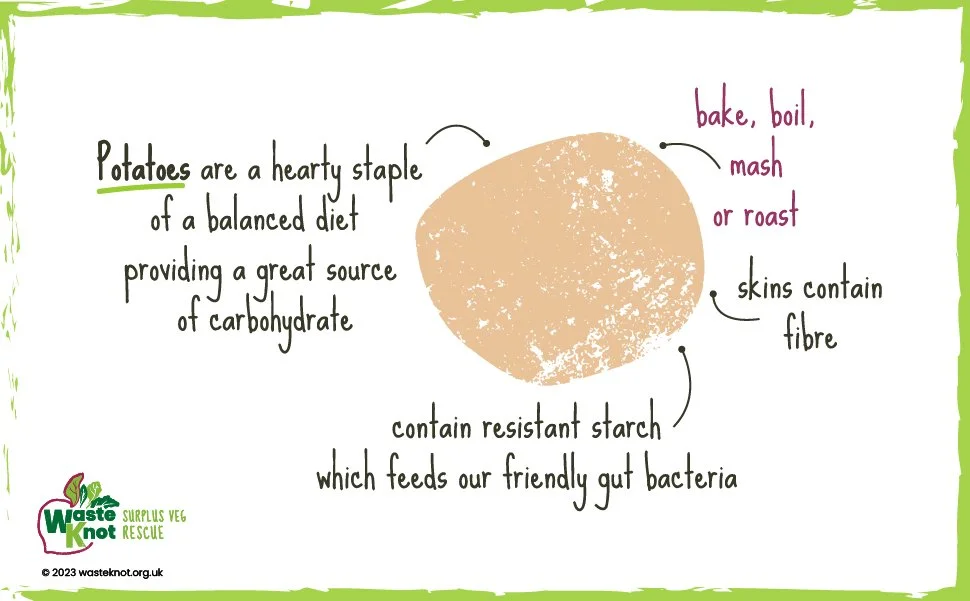 Potatoes are a hearty staple
of a balanced diet
providing a great source
of carbohydrate
bake, boil,
mash
or roast
skins contain
fibre
contain resistant starch
which feeds our friendly gut bacteria
Waste
Knot
SURPLUS VEG
RESCUE
© 2023 wasteknot.org.uk